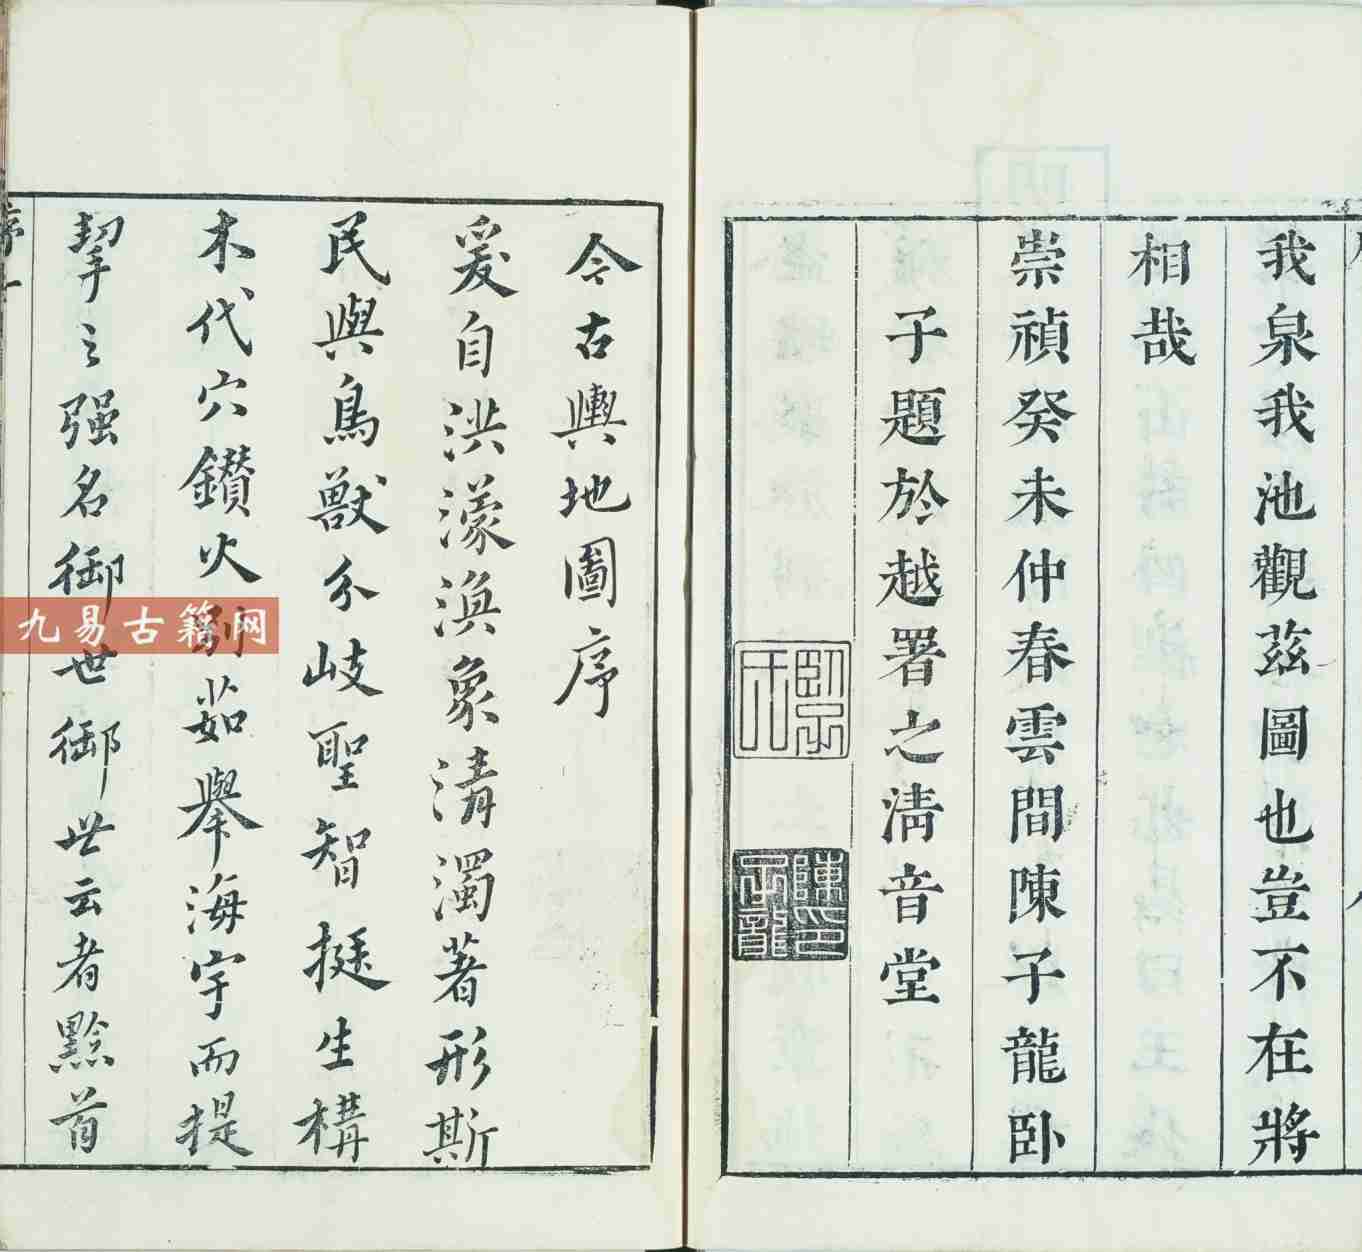 我泉我池觀茲圖也豈不在將
相哉
崇禎癸未仲春雲間陳子龍卧
子題於越署之淸音堂
卧子
陳印子龍
今古輿地圖序
爰自洪濛渙象清濁著形斯
民與鳥獸分岐聖智挺生構
木代穴鑽火別茹舉海宇而提
挈之强名御世御世云者黔首
序一
九易古籍网